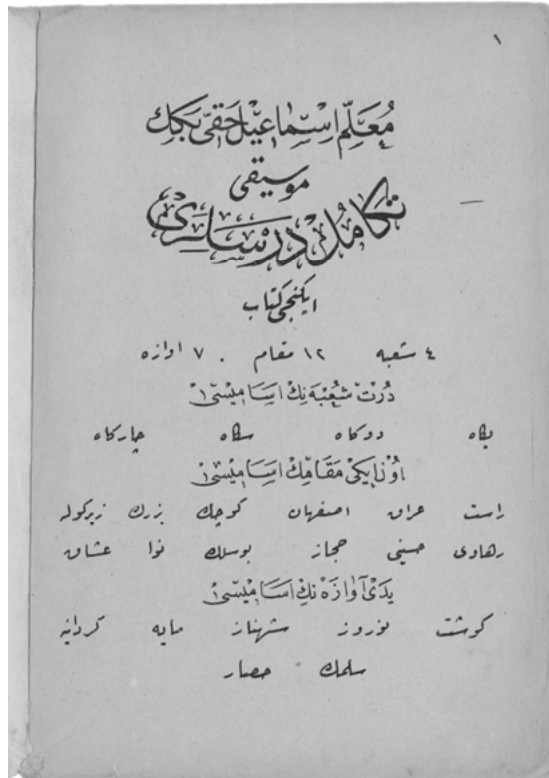 ١
مُعَلِّم اِسْمَاعِيْل حَقِّى بَكِك
موسيقى
تَكَامُلْ دَرْسَلَرِىْ
ايكنجى كتاب
٤ شعبه ١٢ مقام . ٧ اوازه
دُرْتْ شُعْبَه نِكْ اَسَامِيْسِىْ
يكاه دوكاه سكاه چاركاه
اوُنْ اِيكِى مَقَامِكْ اَسَامِيْسِىْ
راست عراق اصفهان كوچك بزرك زيركوله
رهاوى حسينى حجاز بوسلك نوا عشاق
يَدِىْ آوَازَه نِكْ اَسَامِيْسِىْ
كوشت نوروز شهناز مايه كردانيه
سلمك حصار